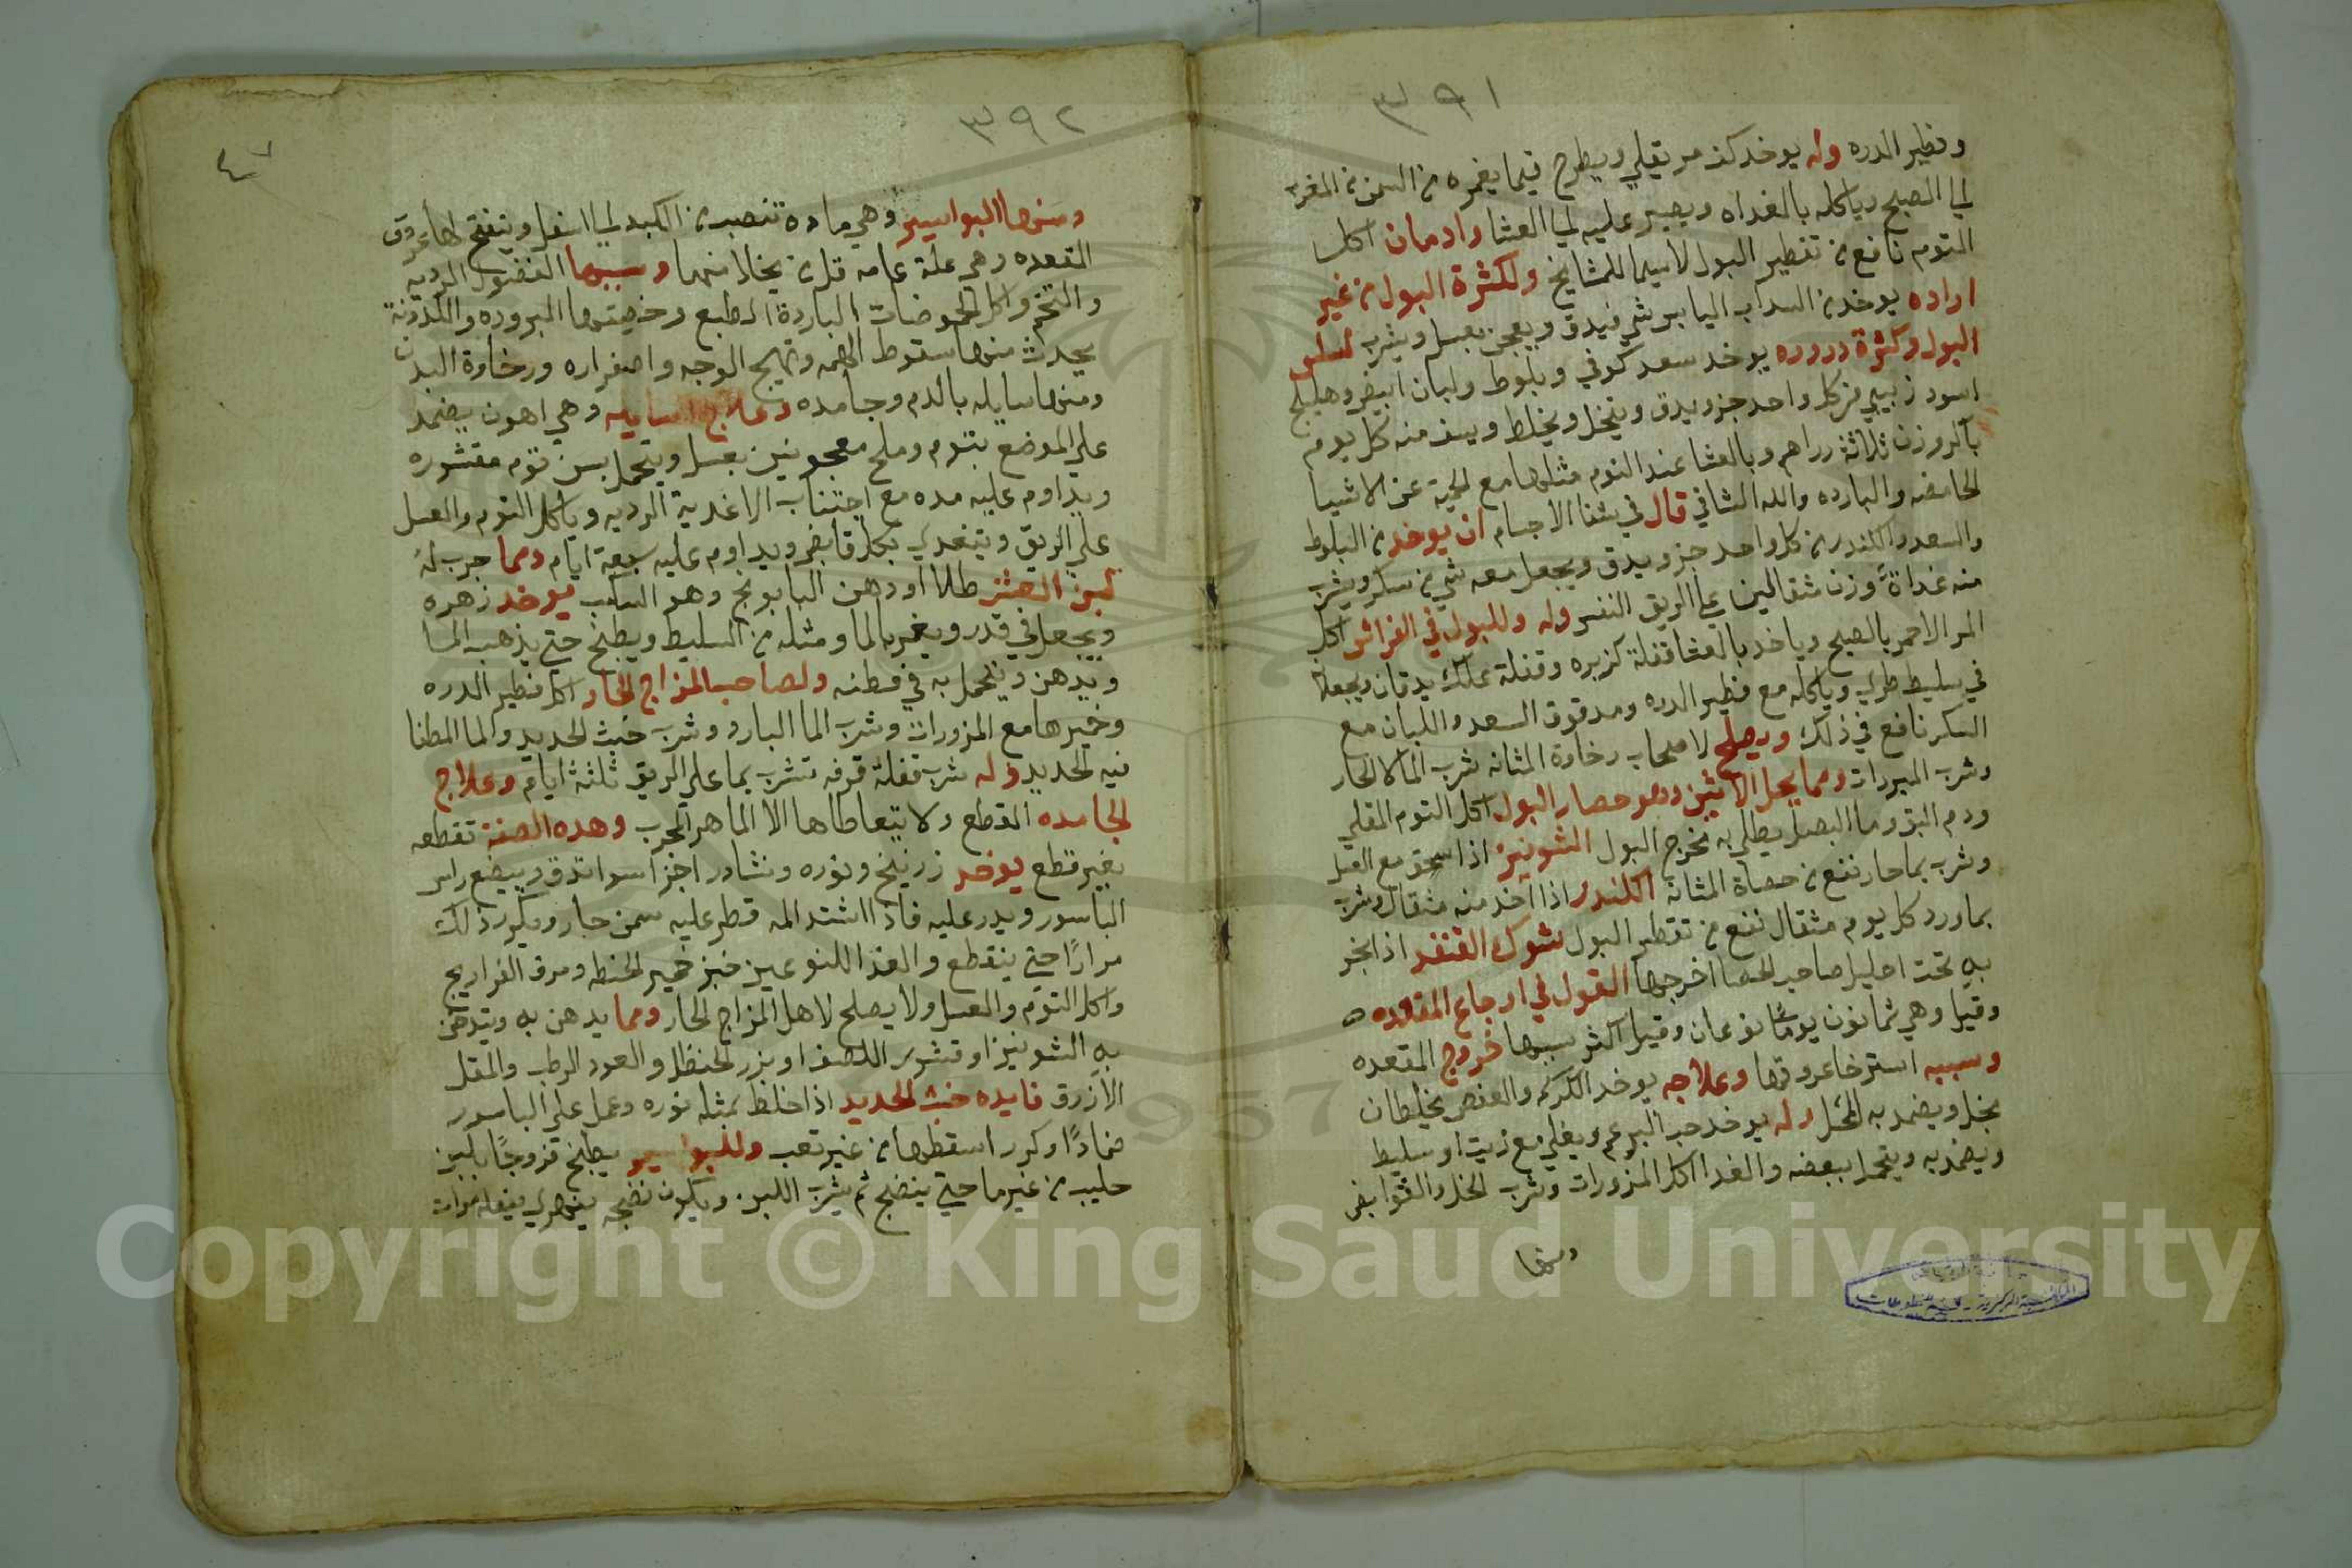 ٣٩١
وفطير الدره وله يوخد كف مر يقلي ويطرح فيما يغمره من السمن من المغرب
الي الصبح وياكله بالغداه ويصبر عليه الي العشا وادمان اكل
التوم نافع من تقطير البول لاسيما للمشايخ ولكثرة البول من غير
اراده يوخد من السداب اليابس شي فيدق ويعجن بعسل ويشرب لسلس
البول وكثرة دروره يوخد سعد كوفي وبلوط ولبان ابيض وهليلج
اسود زبيبي من كل واحد جزو يدق وينخل ويخلط ويسف منه كل يوم
بالروزن ثلاثة دراهم وبالعشا عند النوم مثلها مع الحمية عن الاشيا
الحامضه والبارده والله الشافي قال في شفا الاجسام ان يوخد من البلوط
والسعد والكندر من كل واحد جزو يدق ويجعل معه شي من سكر ويشرب
منه غداةً وزن مثقالين علي الريق النفس وله وللبول في الفراش اكل
المر الاحمر بالصبح وياخد بالعشا قفلة كزبره وقفلة علك يدقان ويجعلا
في سليط طري وياكله مع فطير الدره ومدقوق السعد واللبان مع
السكر نافع في ذلك ويصلح لاصحاب رخاوة المثانه شرب الما الحار
وشرب المبردات ومما يحل الاثنين وهو حصار البول اكل التوم المقلي
ودم البق وما البصل يطلي به مخرج البول الشونيز اذا سحق مع العسل
وشرب بما حار نفع من حصاة المثانه الكندر اذا اخد منه مثقال وشرب
بماورد كل يوم مثقال نفع من تقطير البول شوك القنفد اذا بخر
به تحت احليل صاحب الحصا اخرجها القول في اوجاع المقعده
وقيل وهي ثمانون يومًا نوعان وقيل اكثر سببها خروج المقعده
وسببه استرخا عروقها وعلاجه يوخد الكركم والعفص يخلطان
بخل ويضمد به المحل وله يوخد حب البرعم ويغلي مع زيت او سليط
ويضمد به ويتحمل ببعضه والغدا اكل المزورات وشرب الخل والقوابض
ومنها
٣٩٢
ومنها البواسير وهي ماده تنصب من الكبد الي اسفل وينفتح لها عروق
المقعده وهي علة عامه قل من يخلا منها وسببها الفضول الرديه
والتخم واكل الحموضات الباردة الطبع وخصيتها البروده واللدونة
يحدث منها سقوط الهمه وتهيج الوجه واصفراره ورخاوة البدن
ومنها سايله بالدم وجامده وعلاج السايله وهي اهون يضمد
علي الموضع بتوم وملح معجونين بعسل ويتحمل بسن توم مقشوره
ويداوم عليه مده مع اجتناب الاغدية الرديه وياكل التوم والعسل
علي الريق ويتغدي بكل قابض ويداوم عليه سبعة ايام ومما جرب له
لبن العشر طلا او دهن البابونج وهو السلب يوخد زهره
ويجعل في قدر ويغمر بالما ومثله من السليط ويطبخ حتي يذهب الما
ويدهن ويتحمل به في قطنه ولصاحب المزاج الحار اكل فطير الدره
وخميرها مع المزورات وشرب الما البارد وشرب خبث الحديد والما المطفا
فيه الحديد وله شرب قفلة قرفه تشرب بما علي الريق ثلثة ايام وعلاج
الجامده القطع ولا يتعاطاها الا الماهر المجرب وهده الصفة تقطعه
بغير قطع يوخد زرنيخ ونوره ونشادر اجزا سوا تدق ويبضع راس
الباسور ويدر عليه فاذا اشتد المه قطر عليه سمن حار ويكرر ذلك
مرارًا حتي ينقطع والغذا للنوعين خبز خمير الحنطه ومرق الفراريج
واكل التوم والعسل ولا يصلح لاهل المزاج الحار ومما يدهن به ويتدخن
به الشونيز او قشور اللصف او بزر الحنظل والعود الرطب والمقل
الازرق فايده خبث الحديد اذا خلط بمثله نوره وعمل علي الباسور
ضمادًا وكرر اسقطها من غير تعب وللبواسير يطبخ فروجًا بلبن
حليب من غير ما حتي ينضج ثم يشرب اللبن ويكون نضجه يتهري يفعل مرات